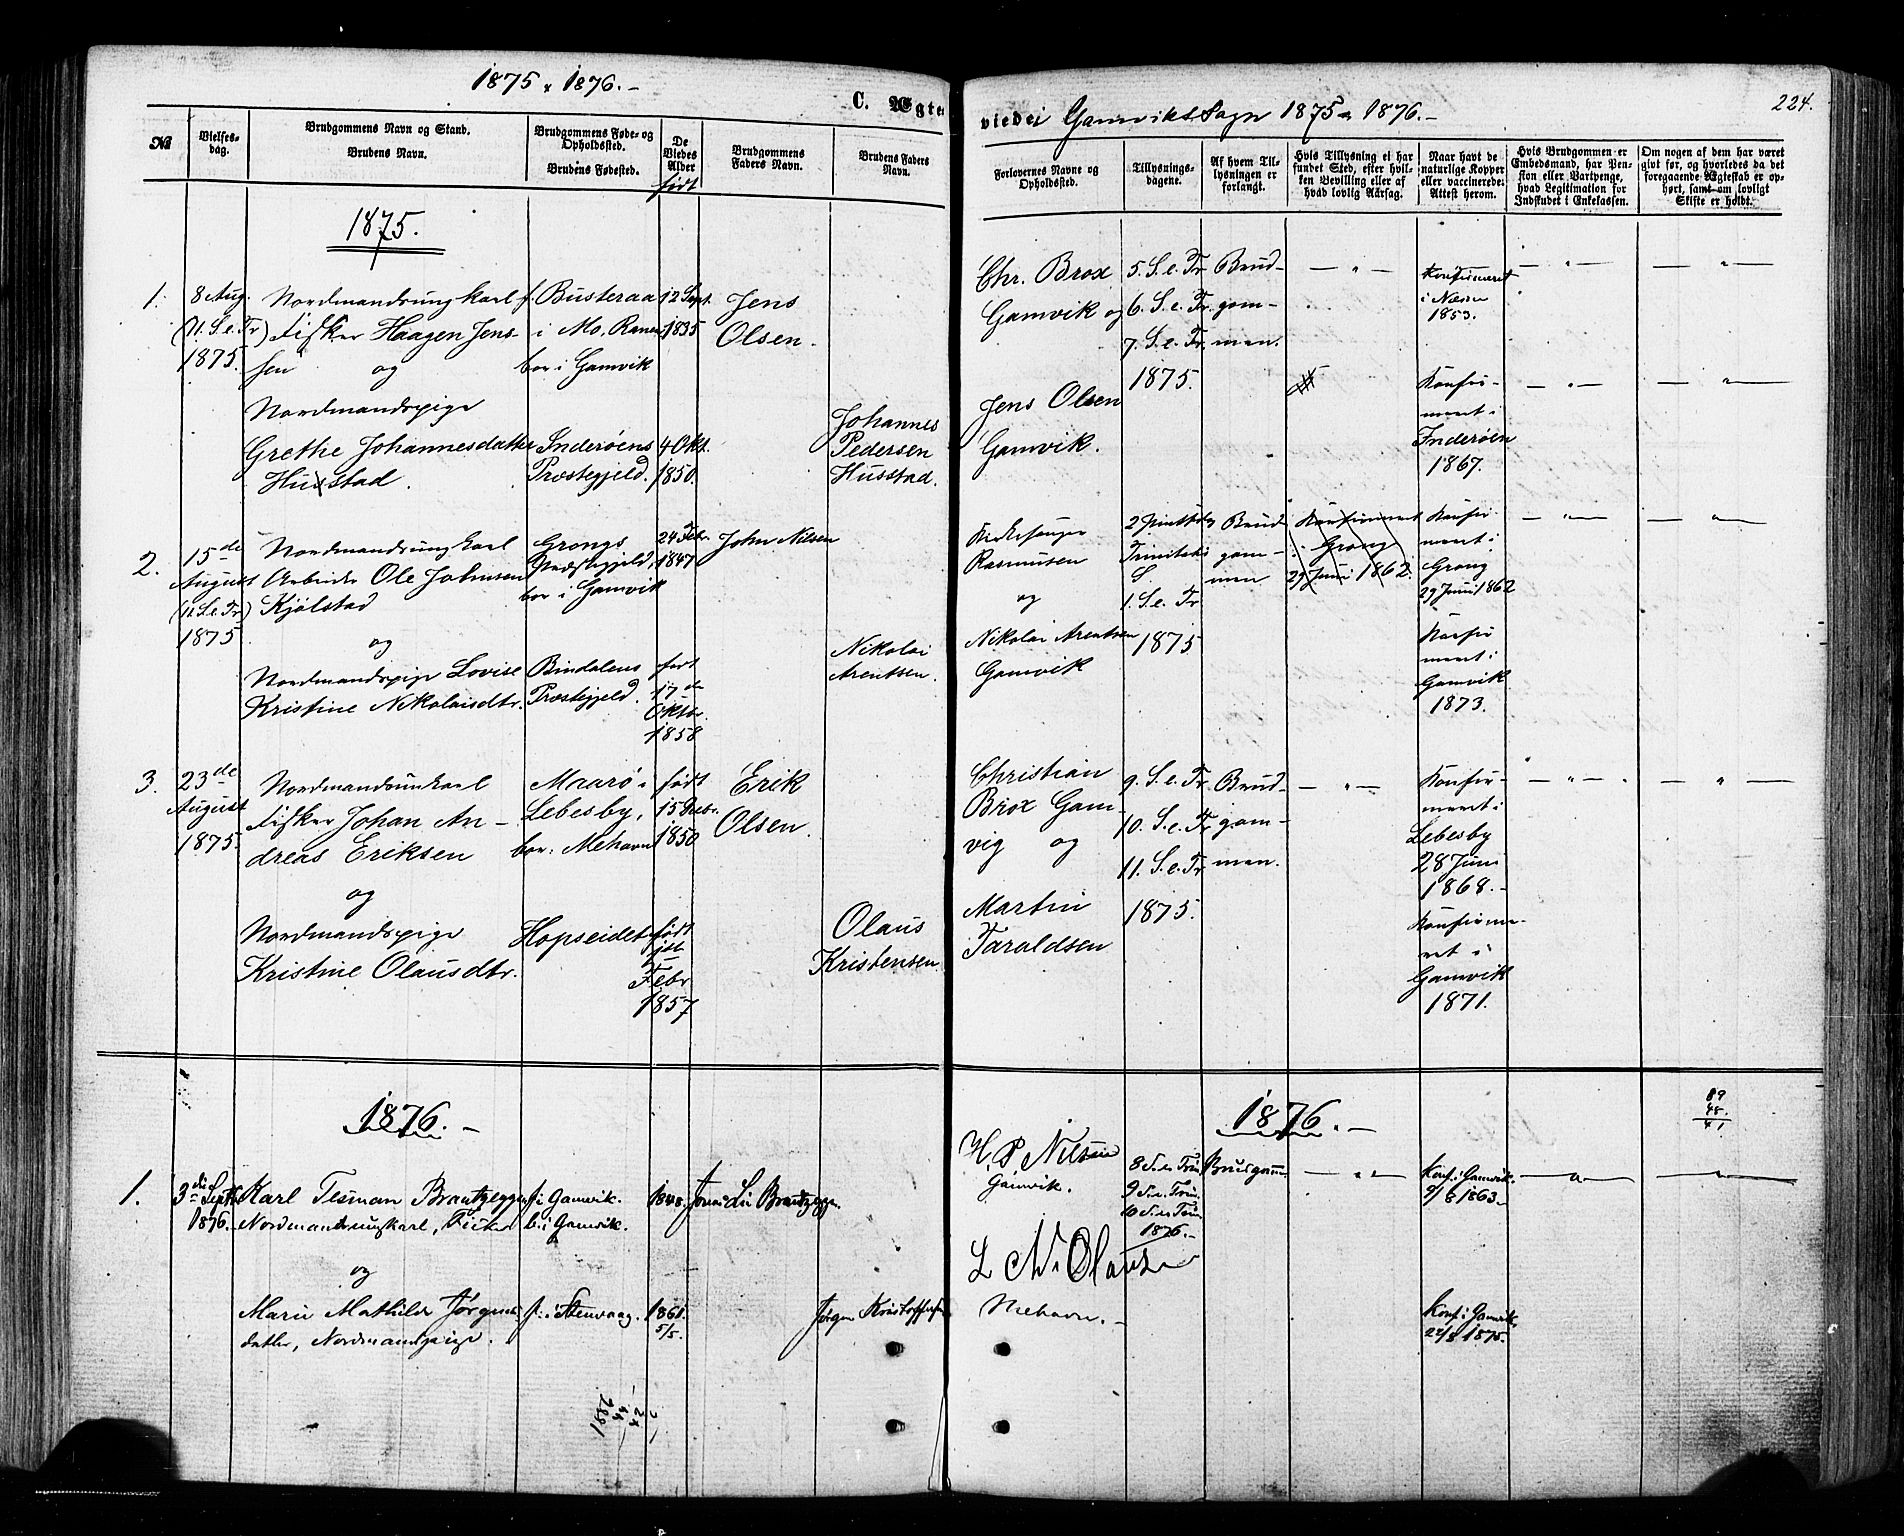 1875 & 1876.-
C. Ægte
viede i Gamviks Sogn 1875 & 1876.-
224.
№
Vielses-
dag.
Brudgommens Navn og Stand.
Brudens Navn.
Brudgommens Føde- og
Opholdssted.
Brudens Fødested.
De
Viedes
Alder
født
Brudgommens
Faders Navn.
Brudens Faders
Navn.
Forlovernes Navne og
Opholdssted.
Tillysnings-
dagene.
Af hvem Til-
lysningen er
forlangt.
Hvis Tillysning ei har
fundet Sted, efter hvil-
ken Bevilling eller af
hvad lovlig Aarsag.
Naar havt de
naturlige Kopper
eller vaccinerede;
Attest herom.
Hvis Brudgommen er
Embedsmand, har Pen-
sion eller Vartpenge,
hvad Legitimation for
Indskudet i Enkekassen.
Om nogen af dem har været
givt før, og hvorledes da det
foregaaende Ægteskab er op-
hørt, samt om lovligt
Skifte er holdt.
1875.
1.
8 Aug.
(11. S. e. Tr)
1875.
Nordmandsungkarl
Fisker Haagen Jens-
sen og
Nordmandspige
Grethe Johannesdatter
Husstad.
f. Busteraa
i Mo, Ranen
bor i Gamvik
Inderøens
Præstegjeld.
12 Sept.
1835
4 Okt.
1850.
Jens
Olsen.
Johannes
Pedersen
Husstad.
Chr. Brox
Gamvik og
Jens Olsen
Gamvik.
5. S. e. Tr
6. S. e. Tr.
7. S. e. Tr.
1875.
Brud-
gom-
men.
Konfirmeret
i Næsne
1853.
Konfir-
meret i
Inderøen
1867.
2.
15de
August
(12 S. e. Tr)
1875
Nordmandsungkarl
Arbeider Ole Johnsen
Kjølstad
og
Nordmandspige Lovise
Kristine Nikolaisdtr.
Grongs
Præstegjeld,
bor i Gamvik
Bindalens
Præstegjeld.
24 Febr.
1847
født
17de
Oktbr.
1858
John Nilsen
Nikolai
Arentsen.
Kirkesanger
Rasmussen
og
Nikolai Arentsen
Gamvik
2 Pintsedg
Trinitatis
S.
1. S. e. Tr
1875
Brud
gom-
men
Konfirmeret
i Grong
29 Juni 1862.
Konfir-
meret i
Grong
29 Juni 1862
Konfir
meret i
Gamvik
1873.
3.
23de
August
1875.
Nordmandsunkarl
Fisker Johan An-
dreas Eriksen
og
Nordmandspige
Kristine Olausdtr.
Maarø i
Lebesby,
bor i Mehavn
Hopseidet
født
15 Debr.
1850
født
1ste
Febr
1857
Erik
Olsen.
Olaus
Kristensen
Christian
Brox Gam-
vig og
Martin
Taraldsen
9. S. e. Tr
10. S. e. Tr
11. S. e. Tr
1875.
Brud-
gom-
men.
Konfir-
meret i
Lebesby
28 Juni
1868.-
Konfirme-
ret i
Gamvik
1871.
1876.-
1876.-
89
48.
41
1.
3die Septbr
1876.
Karl Tesman Brautzegger
Nordmandsungkarl, Fisker
og
Marie Mathilde Jørgens
datter, Nordmandspige.
f. i Gamvik.
b. i Gamvik.
f. i Stensvaag.
1848.
1861.
5/5.
Jørgen Kristoffersen
H. P. Nilsen
Gamvik.
L. N. Olausen
Mehavn.-
8 S. e. Trin
9 S. e. Trin.
10 S. e. Trin
1876.-
Brudgom
Konf. i Gamvik.
1863
Konf. i Gamvik.
1875.